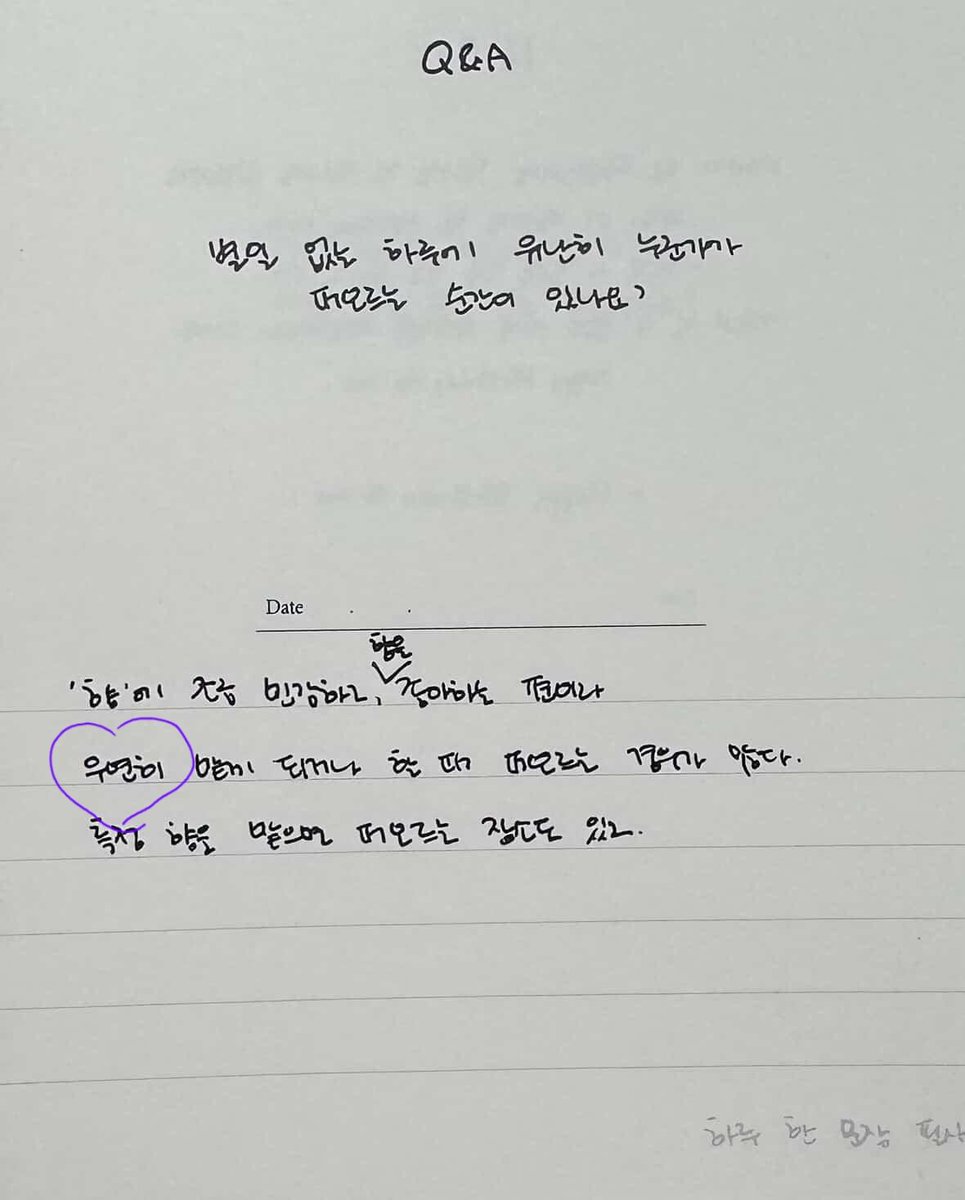 Q&A
별일 없는 하루에 유난히 누군가가
떠오르는 순간이 있나요?
Date . .
향을
'향'에 조금 민감하고, 좋아하는 편이라
우연히 맡게 되거나 할 때 떠오르는 경우가 많다.
특정 향을 맡으면 떠오르는 장소도 있고.
하루 한 문장 필사